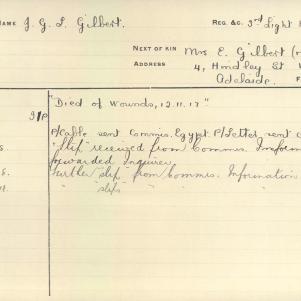 NAME J. G. L. Gilbert. REG. &C. 3rd Light
NEXT OF KIN Mrs E. Gilbert
ADDRESS 4, Hindley St
Adelaide.
"Died of Wounds, 12.11.17"
P/Cable sent Commis. Egypt. P/Letter sent
"Slip" received from Commis.
forwarded inquirer.
Further "slip" from Commis. Information
" "slips" "